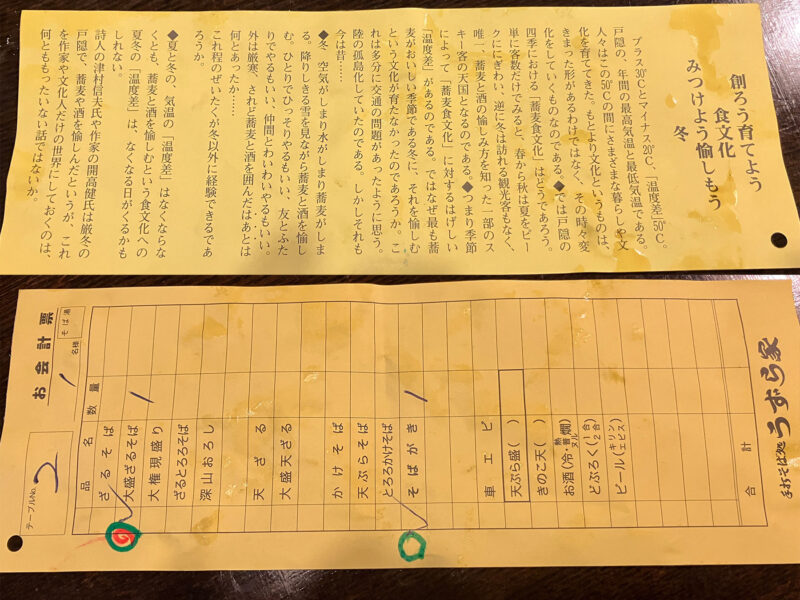 創ろう育てよう
食文化
みつけよう愉しもう
冬
プラス30℃とマイナス20℃、「温度差」50℃。
戸隠の、年間の最高気温と最低気温である。
人々はこの50℃の間にさまざまな暮らしや文
化を育ててきた。もとより文化というものは、
きまった形があるわけではなく、その時々変
化をしていくものなのだ。◆では戸隠の
四季における「蕎麦食文化」はどうであろう。
単に客数だけでみると、春から秋は夏をピー
クににぎわい、逆に冬は訪れる観光客もなく、
唯一、蕎麦と酒の愉しみ方を知った一部のス
キー客の天国となるのである。◆つまり季節
によって「蕎麦食文化」に対するはげしい
「温度差」があるのである。ではなぜ最も蕎
麦がおいしい季節である冬に、それを愉しむ
という文化が育たなかったのであろうか。こ
れは多分に交通の問題があったように思う。
陸の孤島化していたのである。しかしそれも
今は昔……
◆冬 空気がしまり水がしまり蕎麦がしま
る。降りしきる雪を見ながら蕎麦と酒を愉し
む。ひとりでひっそりやるもいい、友とふた
りでやるもいい、仲間とわいわいやるもいい。
外は厳寒、されど蕎麦と酒を囲んだはあとは
何とあったか……
これ程のぜいたくが冬以外に経験できるであ
ろうか。
◆夏と冬の、気温の「温度差」はなくならな
くとも、蕎麦と酒を愉しむという食文化への
夏冬の「温度差」は、なくなる日がくるかも
しれない。
詩人の津村信夫氏や作家の開高健氏は厳冬の
戸隠で、蕎麦や酒を愉しんだというが、これ
を作家や文化人だけの世界にしておくのは、
何とももったいない話ではないか。
お会計票
テーブルNo. 2
1 名様
そば湯
品名 数量
ざるそば
大盛ざるそば 1
大権現盛り
ざるとろろそば
深山おろし
天ざる
大盛天ざる
かけそば
天ぷらそば
とろろかけそば
そばがき 1
車エビ
天ぷら盛( )
きのこ天( )
お酒(冷・普・熱・ヌル燗)
どぶろく(1合 2合)
ビール(キリン エビス)
合計
手打そば処 うずら家